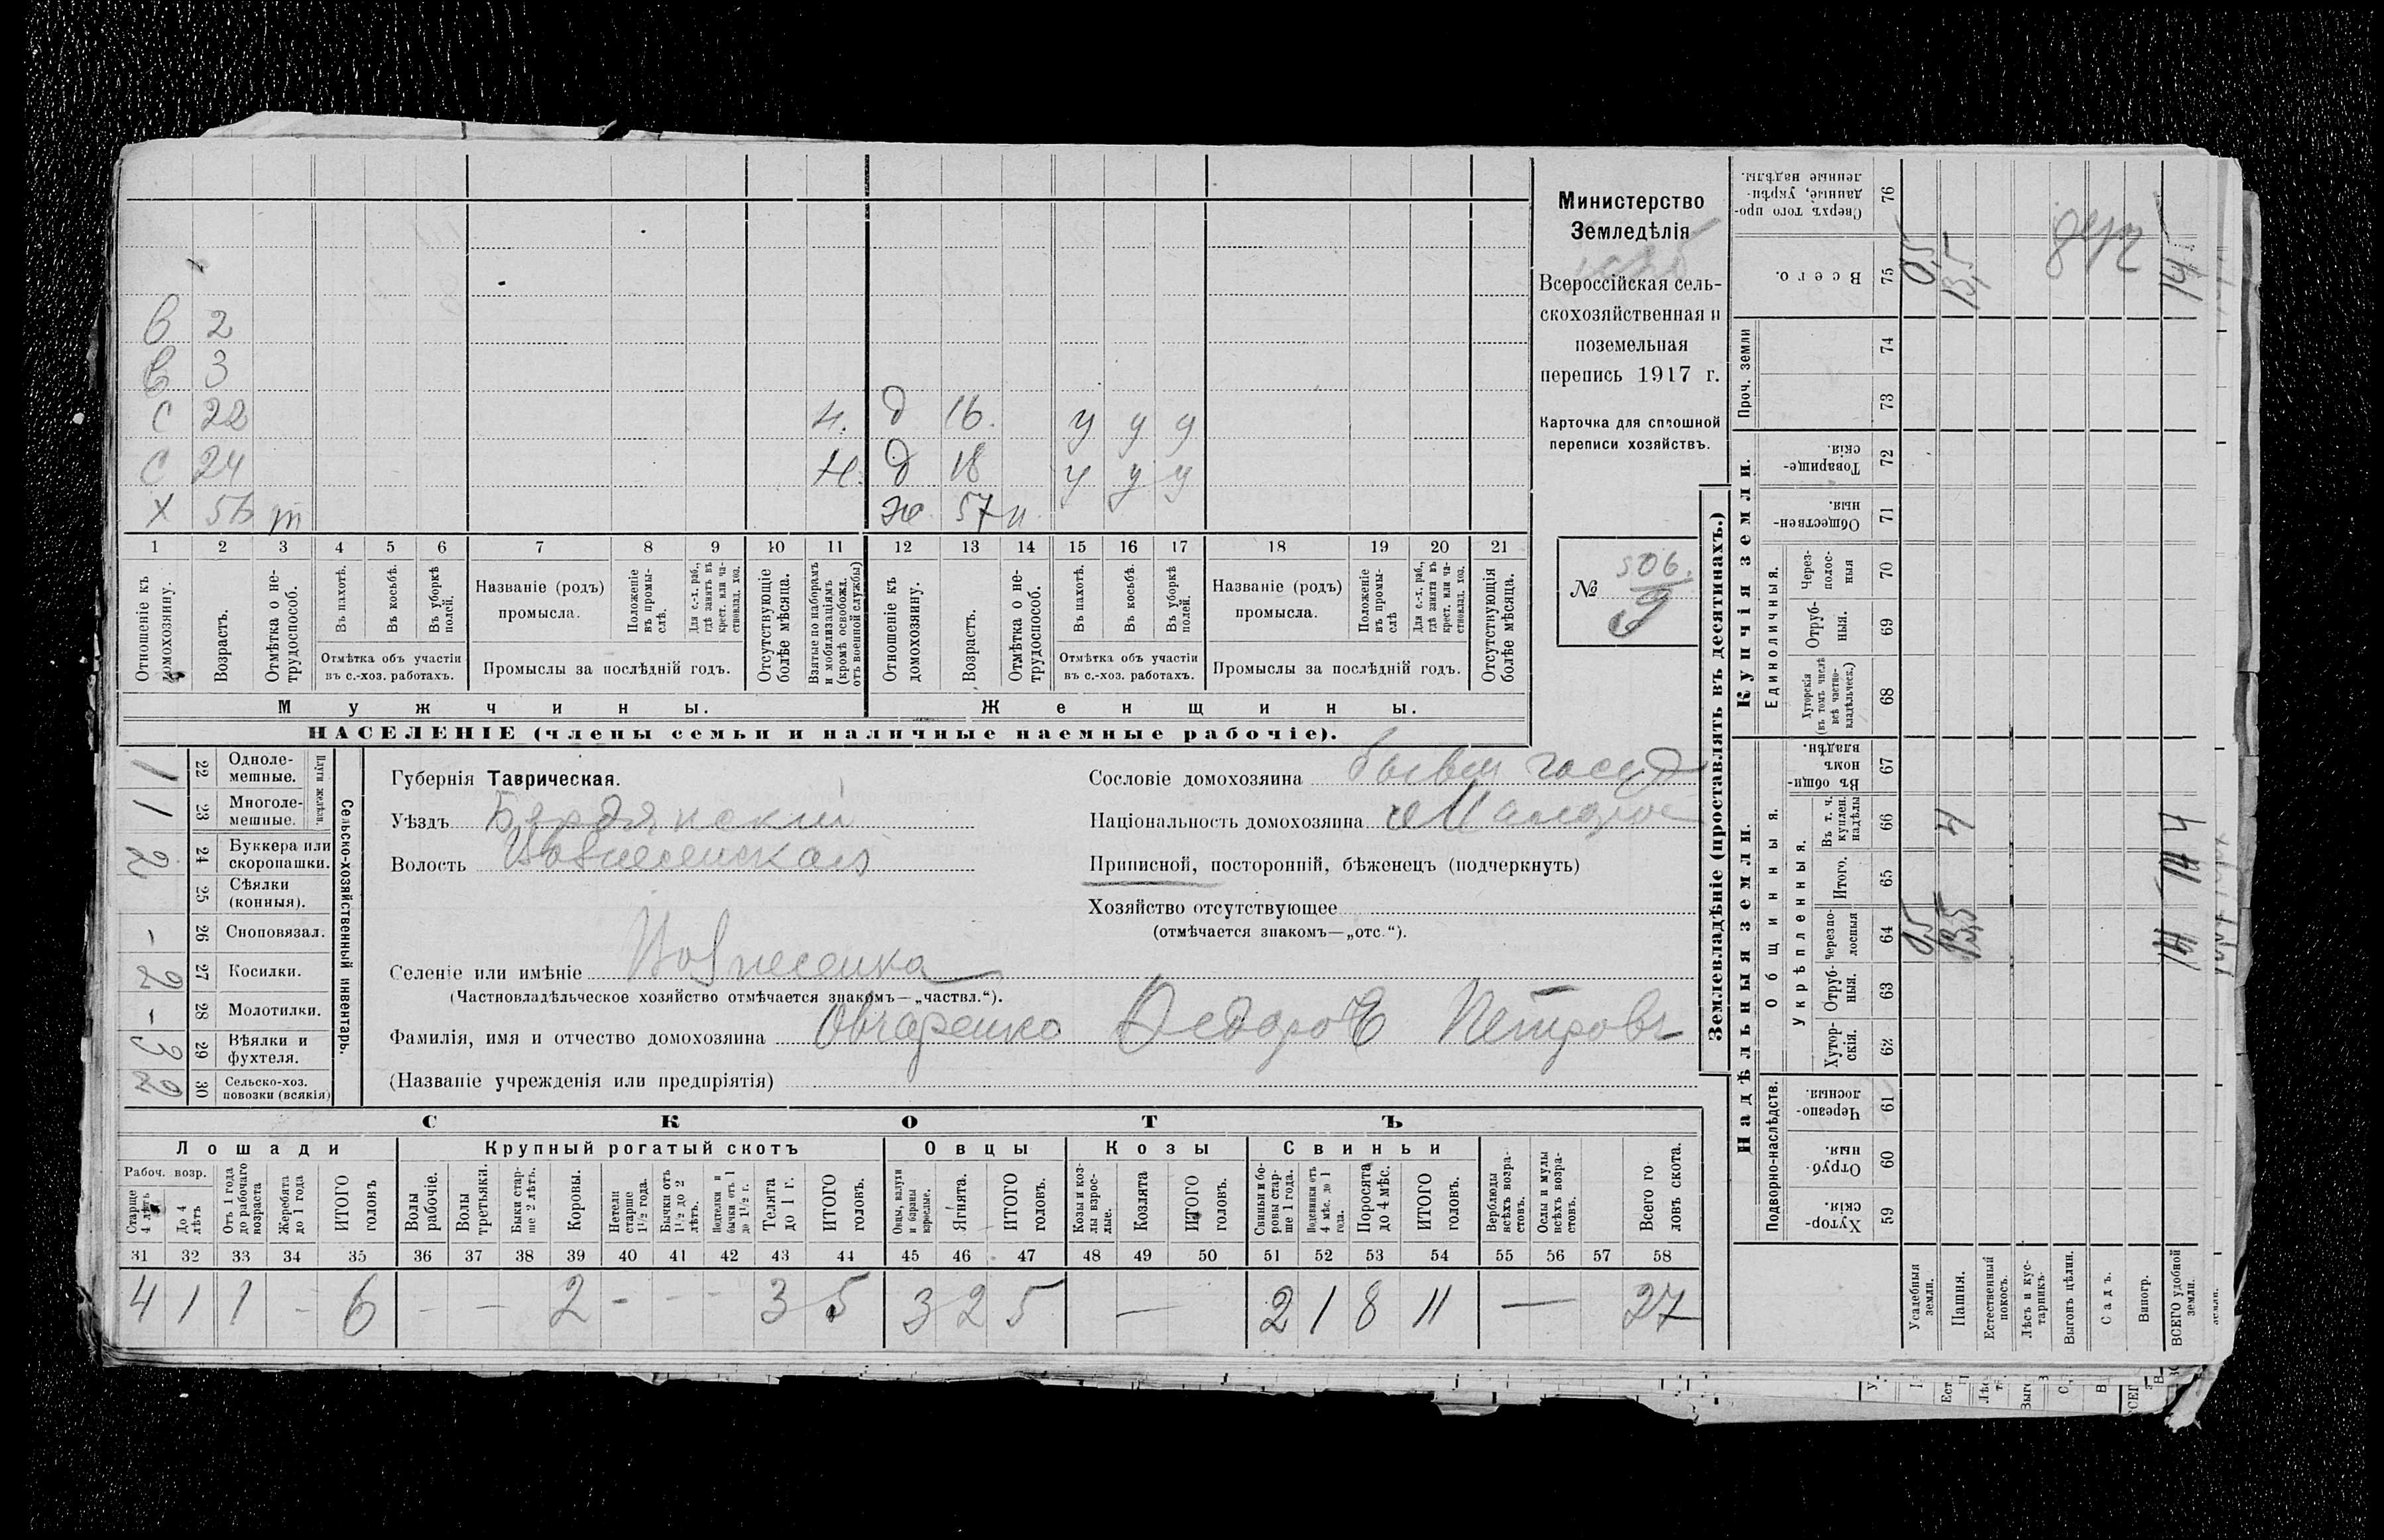 Министерство
Земледѣлія
Всероссійская сель-
скохозяйственная и
поземельная
перепись 1917 г.
Карточка для сплошной
переписи хозяйствъ.
№ 506.
9
в 2
в 3
с 22 н. д 16. у у у
с 24 н. д 18 у у у
х 56 т ж 57 н
1 2 3 4 5 6 7 8 9 10 11 12 13 14 15 16 17 18 19 20 21
Отношеніе къ домохозяину.
Возрастъ.
Отмѣтка о не-трудоспособ.
Въ пахотѣ.
Въ косьбѣ.
Въ уборкѣ полей.
Отмѣтка объ участіи
въ с.-хоз. работахъ.
Названіе (родъ)
промысла.
Положеніе въ промы-слѣ.
Для с.-х. раб., гдѣ занятъ въ крест. или ча-стновлад. хоз.
Промыслы за послѣдній годъ.
Отсутствующіе болѣе мѣсяца.
Взятые по наборамъ и мобилизаціямъ (кромѣ освобожд. отъ военной службы)
Отношеніе къ домохозяину.
Возрастъ.
Отмѣтка о не-трудоспособ.
Въ пахотѣ.
Въ косьбѣ.
Въ уборкѣ полей.
Отмѣтка объ участіи
въ с.-хоз. работахъ.
Названіе (родъ)
промысла.
Положеніе въ промы-слѣ
Для с.-х. раб., гдѣ занята въ крест. или ча-стновлад. хоз.
Промыслы за послѣдній годъ.
Отсутствующія болѣе мѣсяца.
Мужчины.
Женщины.
НАСЕЛЕНІЕ (члены семьи и наличные наемные рабочіе).
Сельско-хозяйственный инвентарь.
Плуги желѣз.
1 22 Одноле-мешные.
1 23 Многоле-мешные.
2 24 Буккера или скоропашки.
25 Сѣялки (конныя).
- 26 Сноповязал.
2 27 Косилки.
- 28 Молотилки.
3 29 Вѣялки и фухтеля.
2 30 Сельско-хоз. повозки (всякія)
Губернія Таврическая.
Уѣздъ Бердянскій
Волость Вознесенская
Селеніе или имѣніе Вознесенка
(Частновладѣльческое хозяйство отмѣчается знакомъ—„частвл.“).
Фамилія, имя и отчество домохозяина Овчаренко Федоръ Петровъ
(Названіе учрежденія или предпріятія)
Сословіе домохозяина бывш госуд
Національность домохозяина Малорос
Приписной, посторонній, бѣженецъ (подчеркнуть)
Хозяйство отсутствующее
(отмѣчается знакомъ—„отс.“).
СКОТЪ
Лошади
Крупный рогатый скотъ
Овцы
Козы
Свиньи
Рабоч. возр.
Старше 4 лѣтъ
До 4 лѣтъ
Отъ 1 года до рабочаго возраста
Жеребята до 1 года
ИТОГО головъ
Волы рабочіе.
Волы третьяки.
Быки стар-ше 2 лѣтъ.
Коровы.
Нетели старше 1½ года.
Бычки отъ 1½ до 2 лѣтъ.
Нетелки и бычки отъ 1 до 1½ г.
Телята до 1 г.
ИТОГО головъ.
Овцы, валухи и бараны взрослые.
Ягнята.
ИТОГО головъ.
Козы и коз-лы взрос-лые.
Козлята
ИТОГО головъ.
Свиньи и бо-ровы стар-ше 1 года.
Подсвинки отъ 4 мѣс. до 1 года.
Поросята до 4 мѣс.
ИТОГО головъ.
Верблюды всѣхъ возра-стовъ.
Ослы и мулы всѣхъ возра-стовъ.
Всего го ловъ скота.
31 32 33 34 35 36 37 38 39 40 41 42 43 44 45 46 47 48 49 50 51 52 53 54 55 56 57 58
4 1 1 - 6 - - 2 - - - 3 5 3 2 5 — 2 1 8 11 — 27
Землевладѣніе (проставлять въ десятинахъ.)
Надѣльныя земли.
Купчія земли.
Проч. земли
Подворно-наслѣдств.
Общинныя.
Укрѣпленныя.
Единоличныя.
Хутор-скія. 59
Отруб-ныя. 60
Черезпо-лосныя 61
Хутор-скія. 62
Отруб-ныя. 63
Черезпо-лосныя 64
Итого. 65
Въ т. ч. куплен. надѣлы 66
Въ общи-номъ владѣн. 67
Хуторскія (въ томъ числѣ всѣ частно-владѣльческ.) 68
Отруб-ныя. 69
Через-полос-ныя 70
Обществен-ныя. 71
Товарище-скія. 72
73
74
Всего. 75
Сверхъ того про-данные, укрѣп-ленные надѣлы. 76
Усадебныя земли. 0,5 0,5
Пашня. 13,5 4 13,5
Естественный покосъ.
Лѣсъ и кус-тарникъ.
Выгонъ цѣлин.
Садъ.
Виногр.
ВСЕГО удобной земли. 14 14 4 14